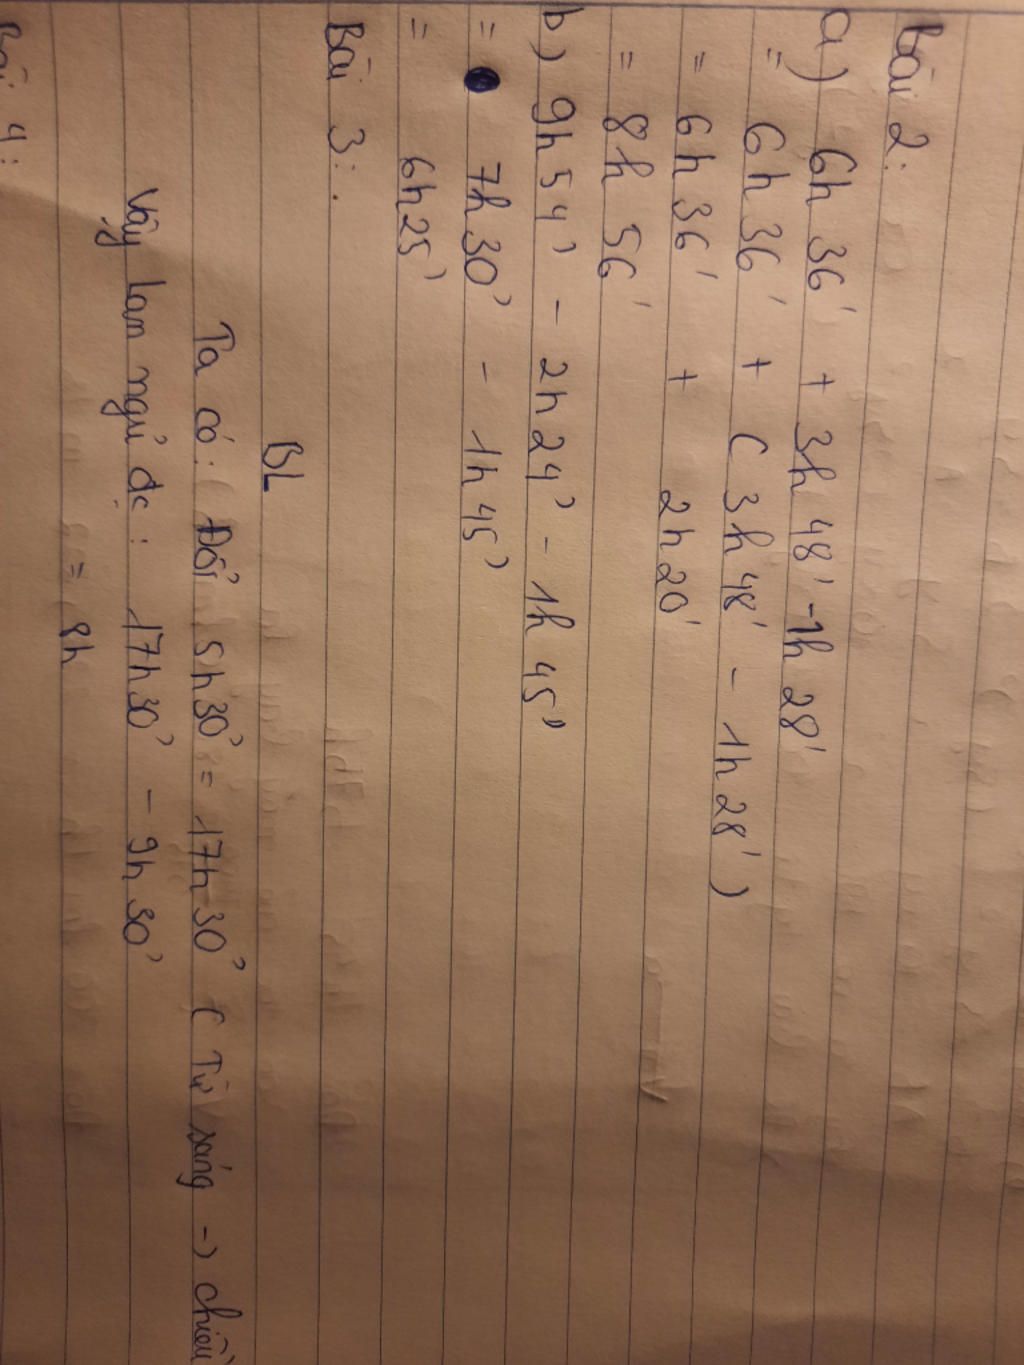 Bài 2:
a) 6h 36' + 3h 48' - 1h 28'
= 6h 36' + ( 3h 48' - 1h 28' )
= 6h 36' + 2h 20'
= 8h 56'
b) 9h 54' - 2h 24' - 1h 45'
= 7h 30' - 1h 45'
= 6h25'
Bài 3:.
BL
Ta có: Đổi 5h30' = 17h30' ( Từ sáng -> chiều
Vậy lan ngủ đc: 17h30' - 9h30'
= 8h
Bài 4: